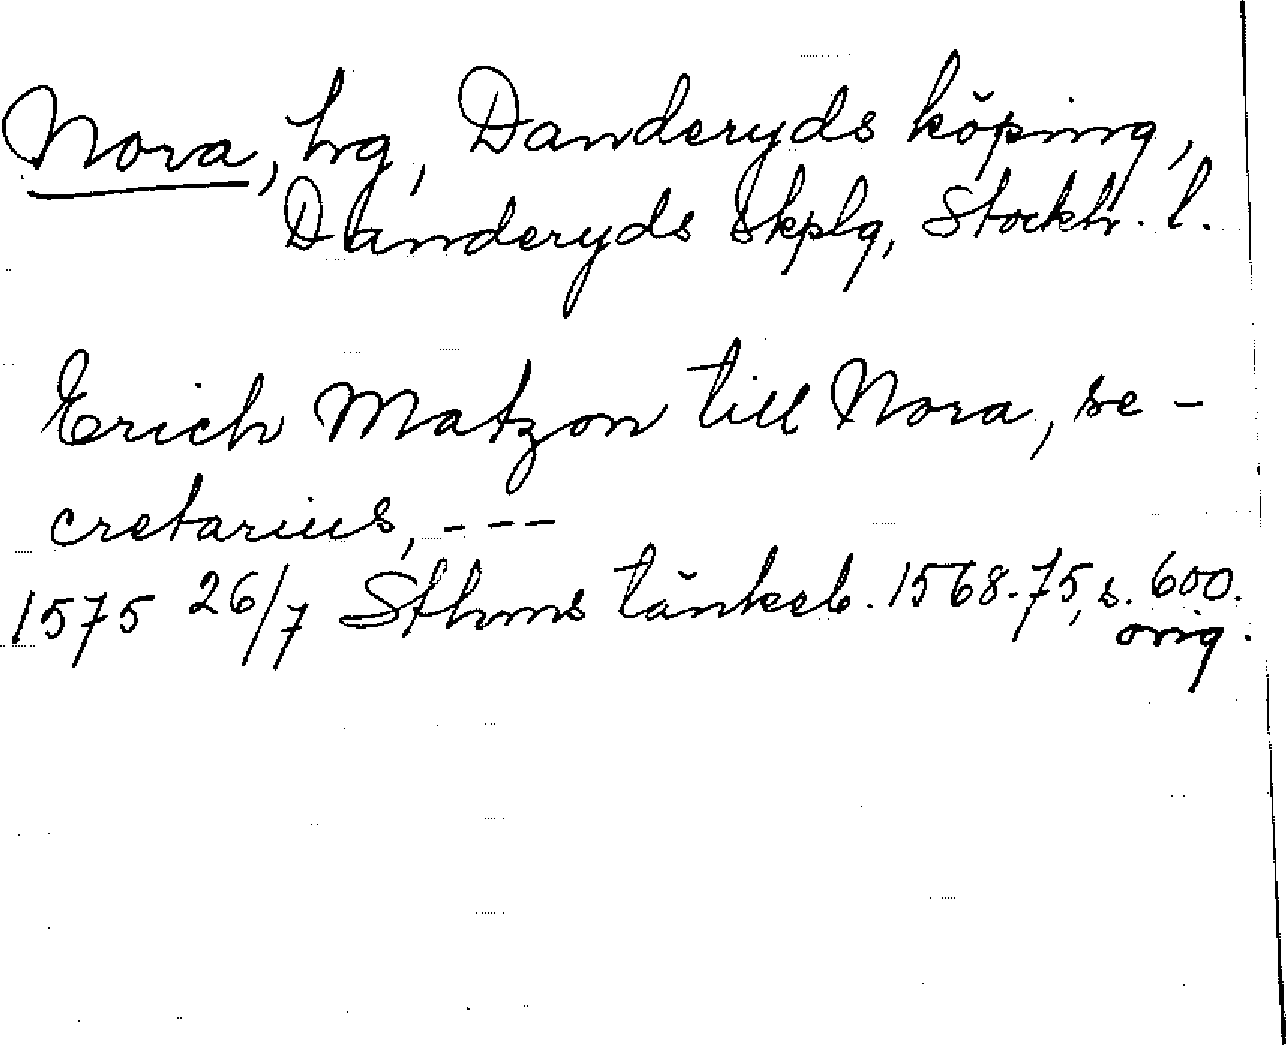 Nora, hg, Danderyds köping,
Danderyds skplg, Stockh. l.
Erich Matzon till Nora, se-
cretarius, ---
1575 26/7 Sthms tänkeb. 1568-75, s. 600.
orig.